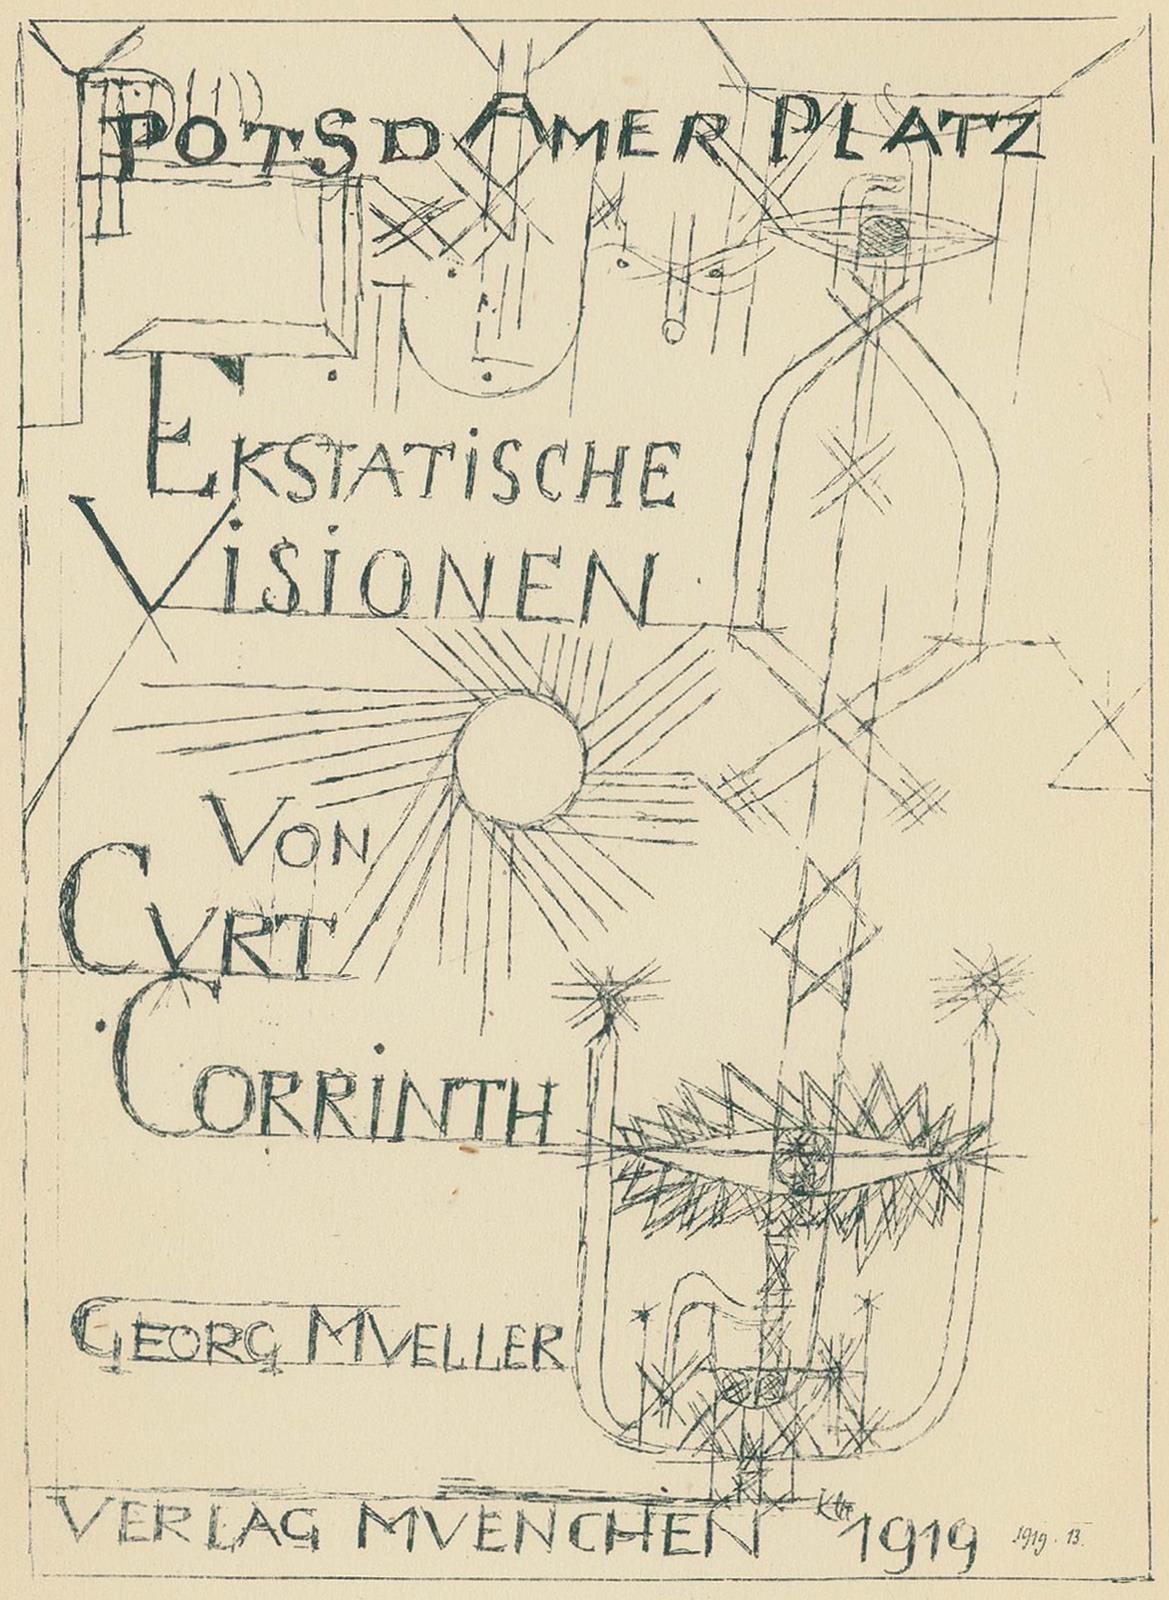 POTSDAMER PLATZ
EKSTATISCHE
VISIONEN
VON
CVRT
CORRINTH
GEORG MVELLER
VERLAG MVENCHEN 1919
1919.13.